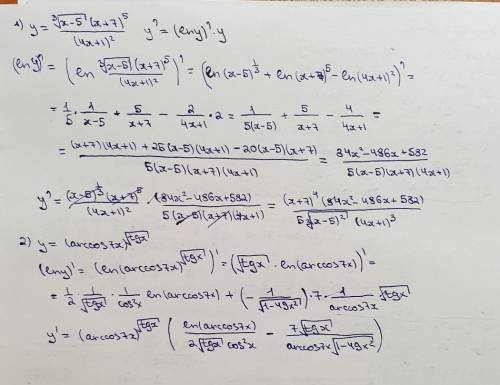 1) y = ∛(x-5) (x+7)^5 / (4x+1)^2   y' = (lny)' · y
(lny)' = (ln ∛(x-5) (x+7)^5 / (4x+1)^2)' = (ln(x-5)^(1/3) + ln(x+7)^5 - ln(4x+1)^2)' =
= 1/5 · 1/(x-5) + 5/(x+7) - 2/(4x+1) · 2 = 1/(5(x-5)) + 5/(x+7) - 4/(4x+1) =
= ((x+7)(4x+1) + 25(x-5)(4x+1) - 20(x-5)(x+7)) / (5(x-5)(x+7)(4x+1)) = (84x²-486x+582) / (5(x-5)(x+7)(4x+1))
y' = (x-5)^(1/3) (x+7)^5 / (4x+1)^2 · (84x²-486x+582) / (5(x-5)(x+7)(4x+1)) = (x+7)^4 (84x²-486x+582) / (5 ∛(x-5)^2 (4x+1)^3)
2) y = (arccos7x)^√tgx
(lny)' = (ln(arccos7x)^√tgx)' = (√tgx · ln(arccos7x))' =
= 1/2 · 1/√tgx · 1/cos²x ln(arccos7x) + (-1/√(1-49x²)) · 7 · 1/arccos7x √tgx
y' = (arccos7x)^√tgx (ln(arccos7x) / (2√tgx cos²x) - 7√tgx / (arccos7x √(1-49x²)))